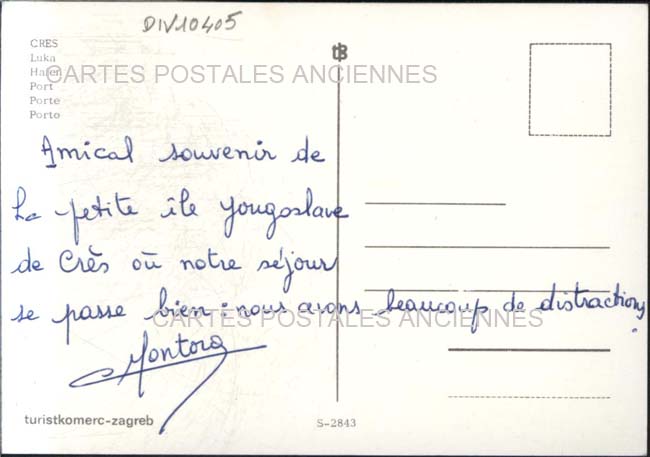 DIV10405
CRES
Luka
Hafen
Port
Porte
Porto
CARTES POSTALES ANCIENNES
Amical souvenir de
la petite île yougoslave
de Crès où notre séjour
se passe bien : nous avons beaucoup de distractions.
CARTES POSTALES ANCIENNES
turistkomerc-zagreb
S-2843